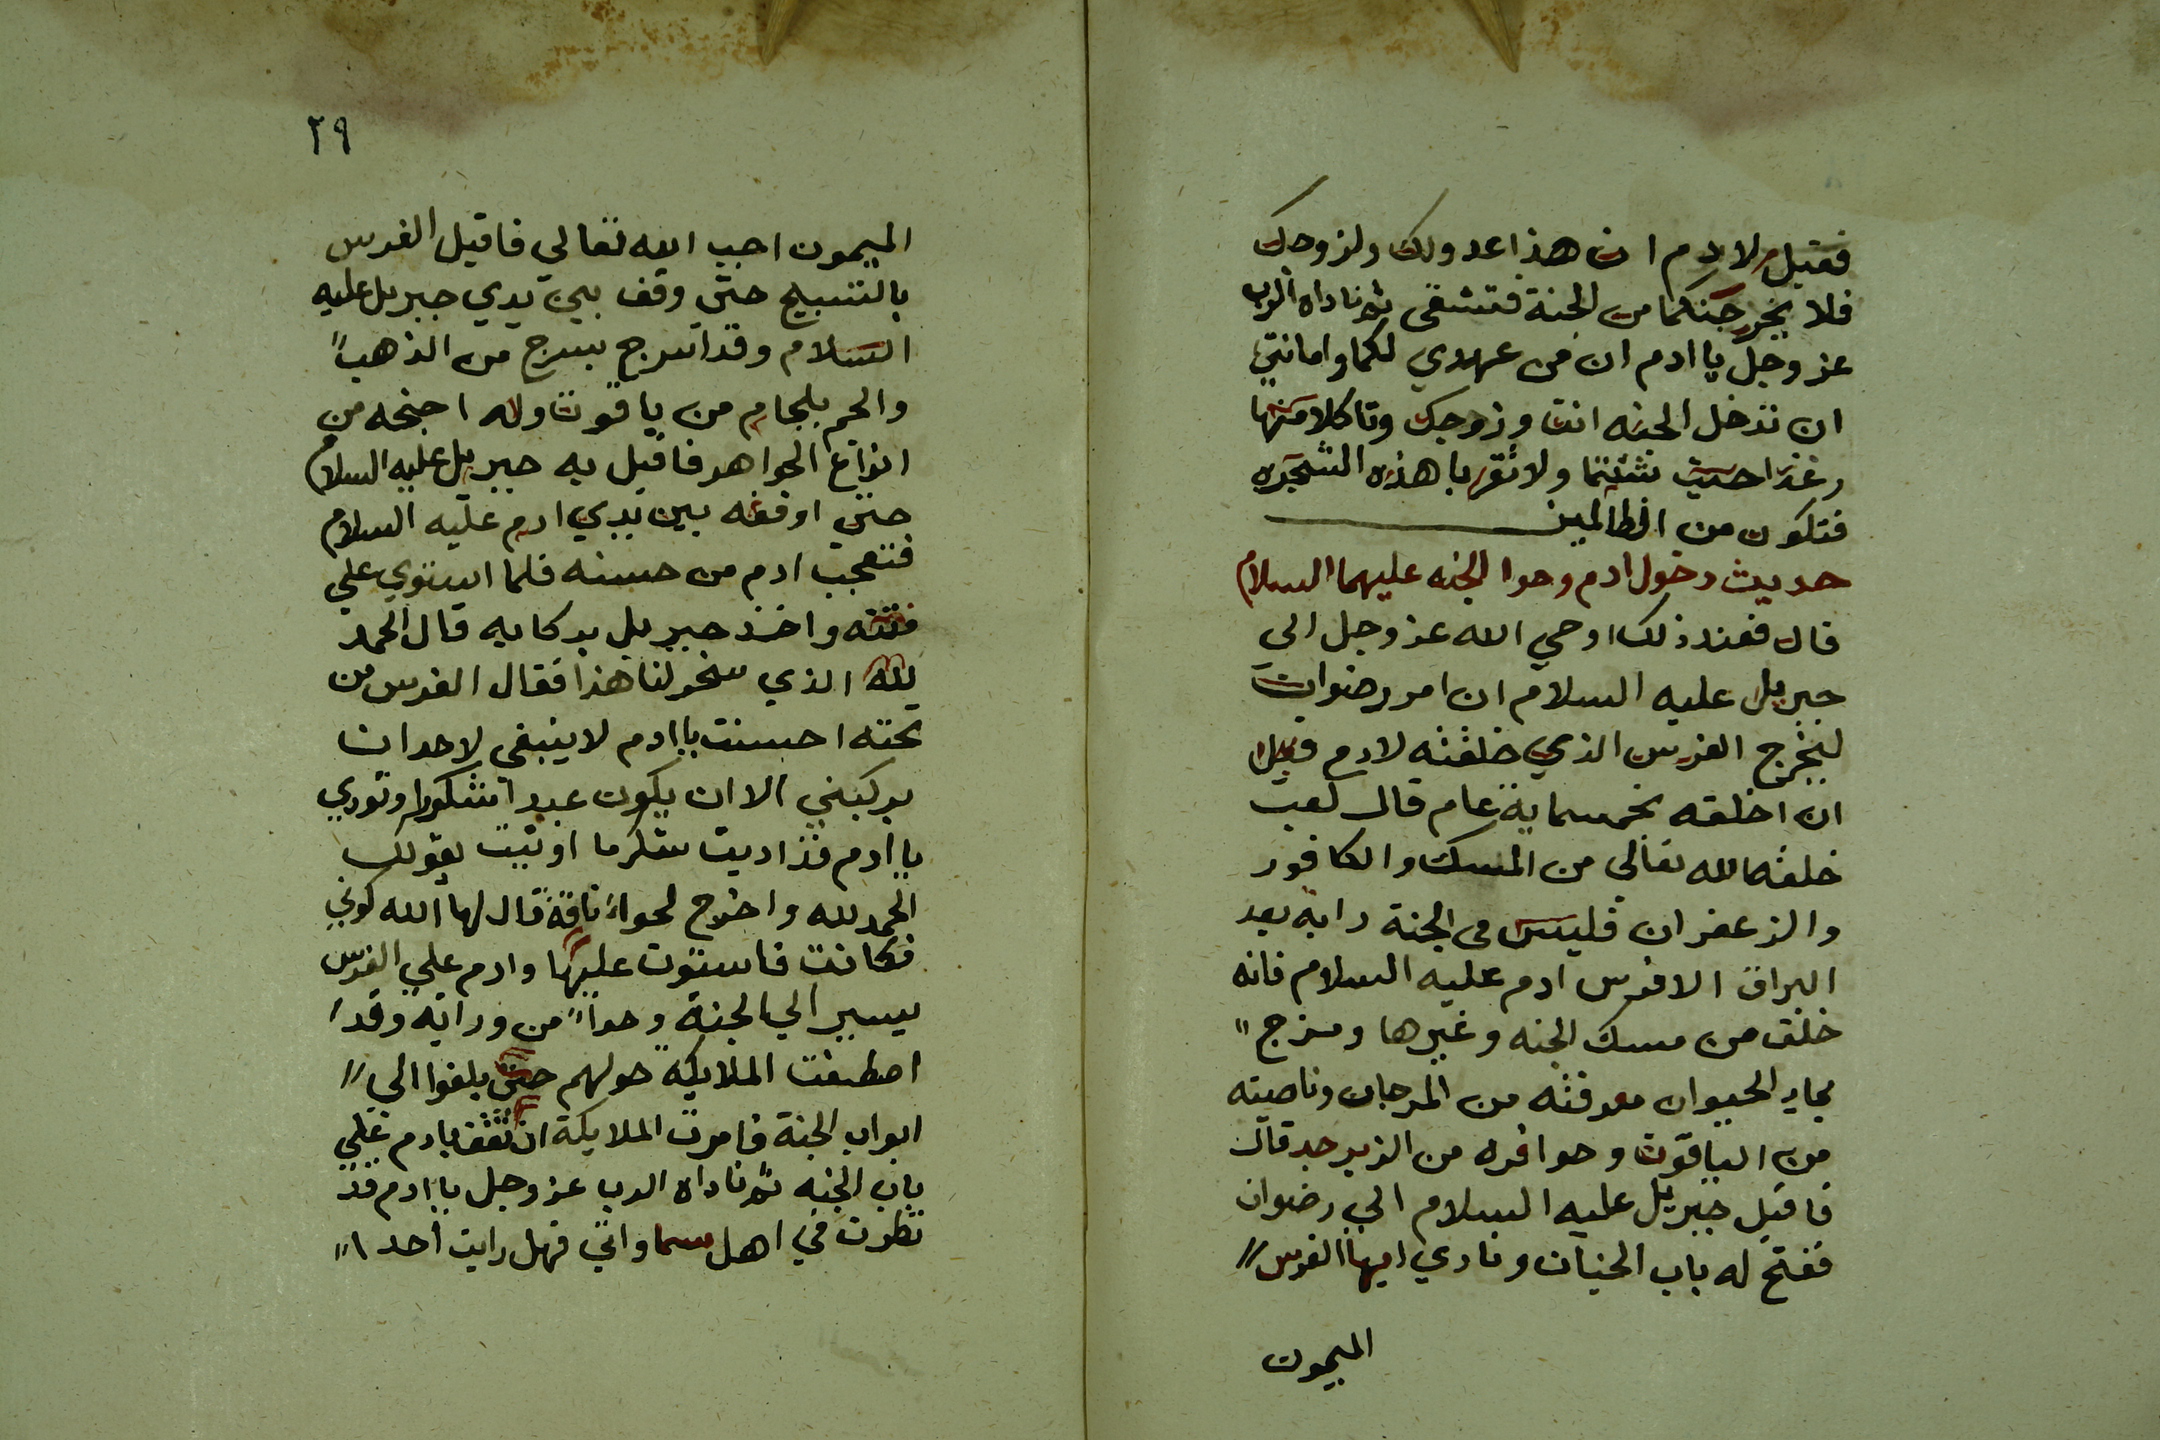 فقيل لادم ان هذا عدو لك ولزوجك
فلا يخرجنكما من الجنة فتشقى ثم ناداه الرب
عز وجل يا ادم ان من عهدي لكما وامانتي
ان تدخل الجنه انت وزوجك وتاكلا منها
رغدا حيث شئتما ولا تقربا هذه الشجره
فتكون من الظالمين
حديث دخول ادم وحوا الجنه عليهما السلام
قال فعند ذلك اوحي الله عز وجل الى
جبريل عليه السلام ان امر رضوان
ليخرج الفرس الذي خلقته لادم قبل
ان اخلقه بخمسماية عام قال كعب
خلقه الله تعالي من المسك والكافور
والزعفران فليس في الجنة دابة بعد
البراق الا فرس ادم عليه السلام فانه
خلق من مسك الجنه وغيرها ومزج "
بماء الحيوان معرفته من المرجان وناصيته
من الياقوت وحوافره من الزبرجد قال
فاقبل جبريل عليه السلام الي رضوان
ففتح له باب الجنان ونادي ايها الفرس //
الميمون
٢٩
الميمون اجب الله تعالي فاقبل الفرس
بالتسبيح حتى وقف بين يدي جبريل عليه
السلام وقد اسرج بسرج من الذهب "
والجم بلجام من ياقوت وله اجنحه من
انواع الجواهر فاقبل به جبريل عليه السلام
حتي اوقفه بين يدي ادم عليه السلام
فتعجب ادم من حسنه فلما استوي علي
واخذ جبريل بركابه قال الحمد
لله الذي سخر لنا هذا فقال الفرس من
تحته احسنت يا ادم لا ينبغي لاحد ان
يركبني الا ان يكون عبدا شكورا
يا ادم قد اديت شكر ما اوتيت بقولك
الحمد لله واخرج لحواء ناقة قال لها الله كوني
فكانت فاستوت عليها وادم علي الفرس
يسير الي الجنة وحوا " من ورائه وقد
اصطفت الملايكة حولهم حتى بلغوا الي //
ابواب الجنة فامرت الملايكة ان تقف بادم علي
باب الجنه ثم ناداه الرب عز وجل يا ادم قد
نظرت في اهل سماواتي فهل رايت احدا "